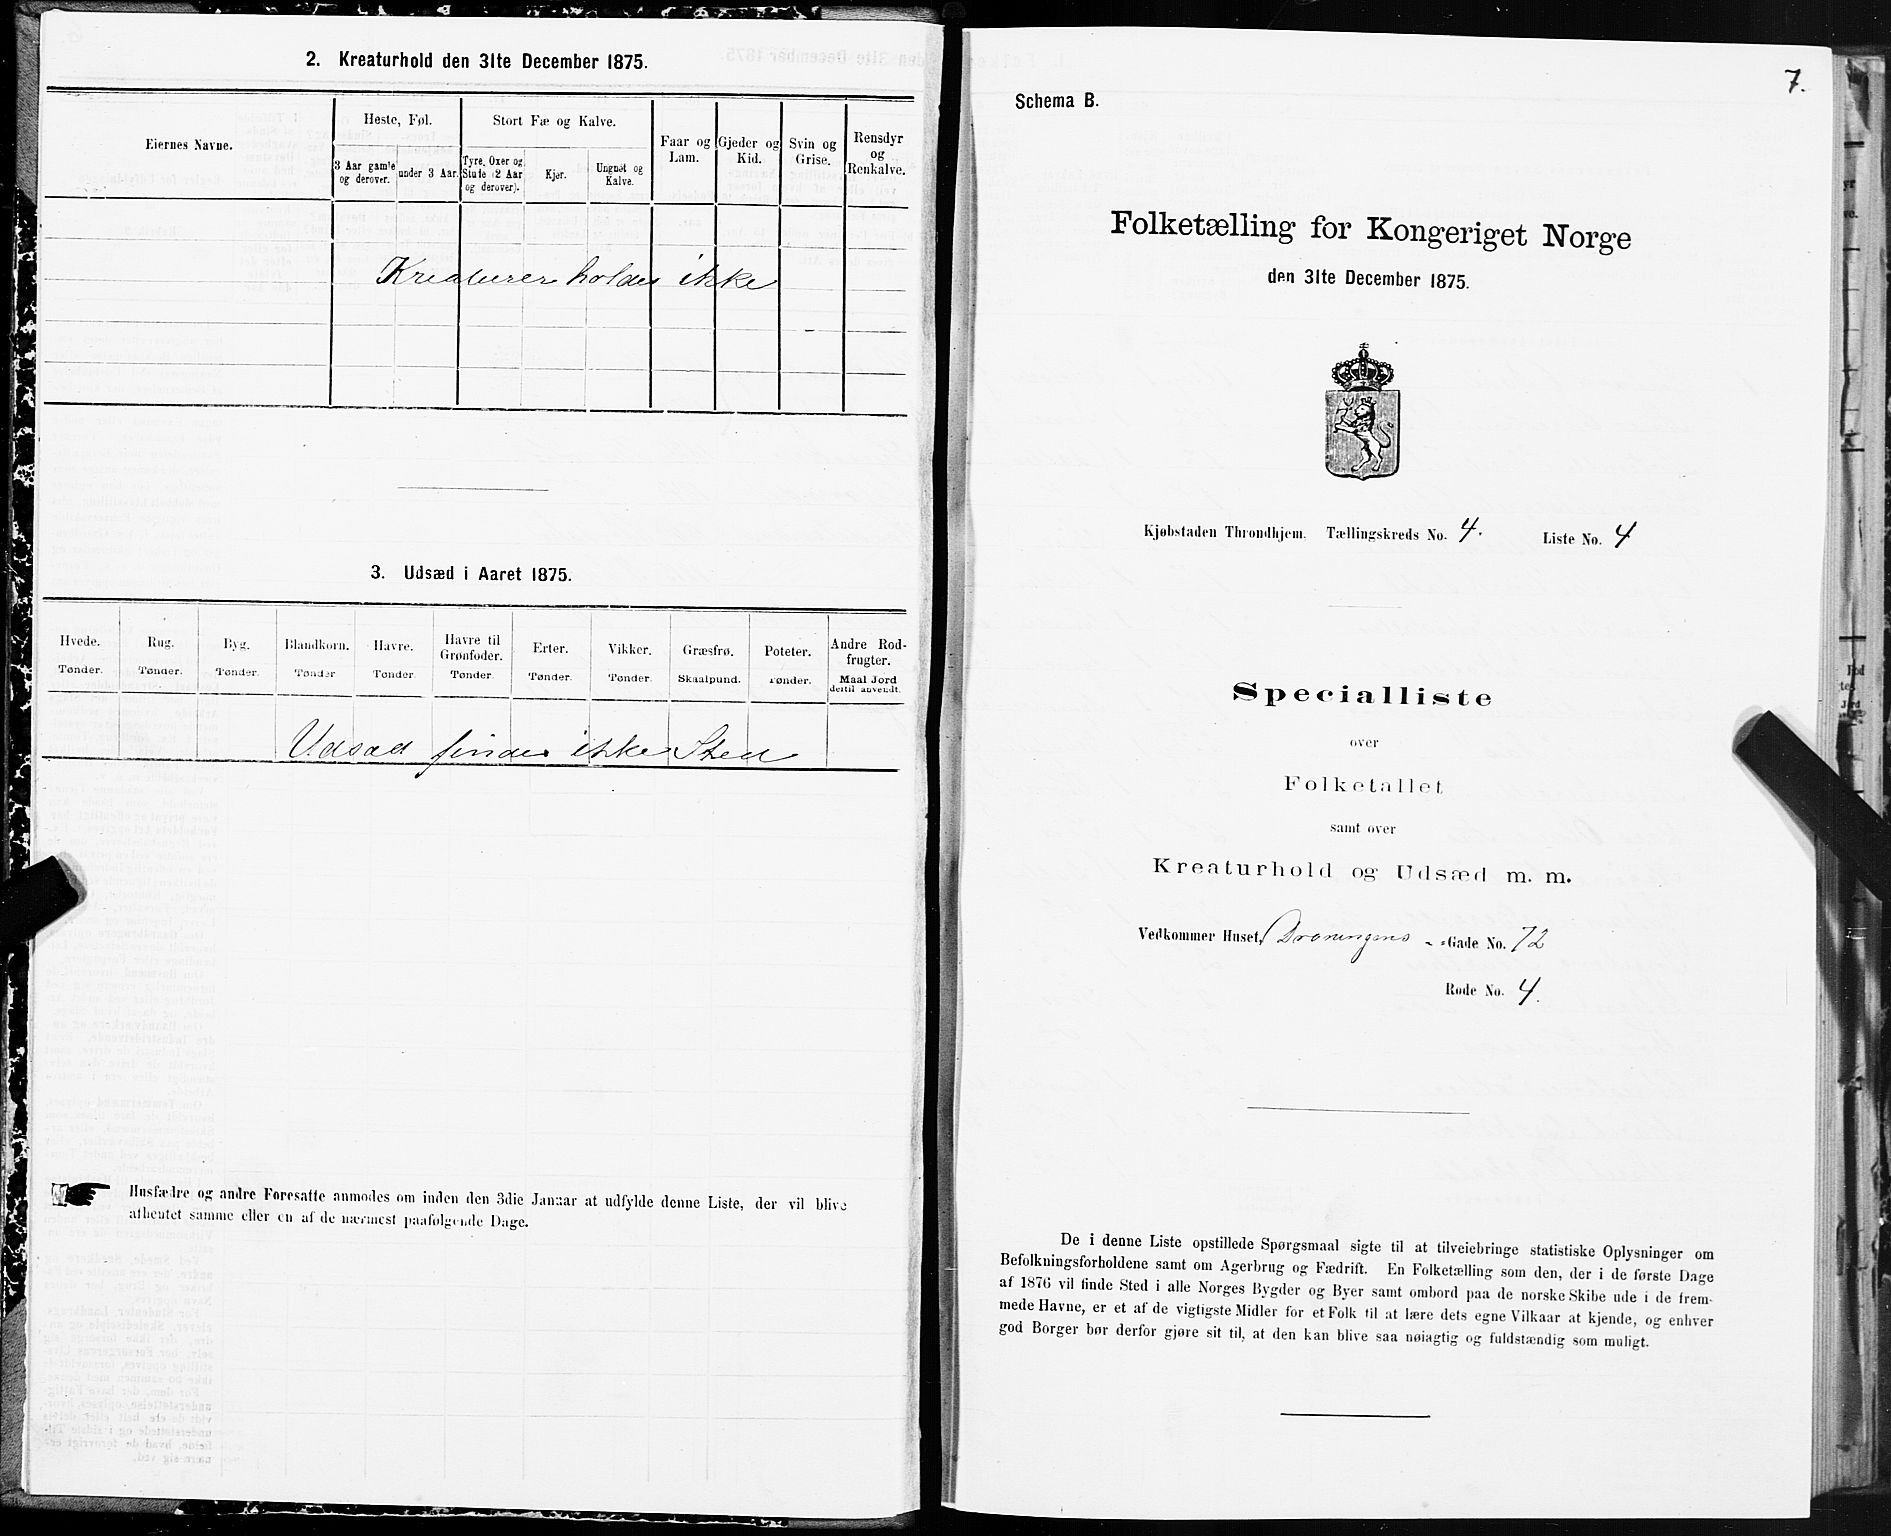 2. Kreaturhold den 31te December 1875.
Eiernes Navne.
Heste, Føl.
Stort Fæ og Kalve.
Faar og Lam.
Gjeder og Kid.
Svin og Grise.
Rensdyr og Renkalve.
3 Aar gamle og derover.
under 3 Aar.
Tyre, Oxer og Stute (2 Aar og derover).
Kjør.
Ungnøt og Kalve.
Kreaturer holdes ikke
3. Udsæd i Aaret 1875.
Hvede. Rug. Byg. Blandkorn. Havre. Havre til Grønfoder. Erter. Vikker. Græsfrø. Poteter. Andre Rodfrugter.
Tønder. Tønder. Tønder. Tønder Tønder. Tønder. Tønder. Tønder. Skaalpund. Tønder. Maal Jord dertil anvendt.
Udsæd findes ikke Sted
Husfædre og andre Foresatte anmodes om inden den 3die Januar at udfylde denne Liste, der vil blive
afhentet samme eller en af de nærmest paafølgende Dage.
7.
Schema B.
Folketælling for Kongeriget Norge
den 31te December 1875.
Kjøbstaden Throndhjem. Tællingskreds No. 4. Liste No. 4
Specialliste
over
Folketallet
samt over
Kreaturhold og Udsæd m. m.
Vedkommer Huset, Dronningens -Gade No. 72
Rode No. 4.
De i denne Liste opstillede Spørgsmaal sigte til at tilveiebringe statistiske Oplysninger om
Befolkningsforholdene samt om Agerbrug og Fædrift. En Folketælling som den, der i de første Dage
af 1876 vil finde Sted i alle Norges Bygder og Byer samt ombord paa de norske Skibe ude i de frem-
mede Havne, er et af de vigtigste Midler for et Folk til at lære dets egne Vilkaar at kjende, og enhver
god Borger bør derfor gjøre sit til, at den kan blive saa nøiagtig og fuldstændig som muligt.